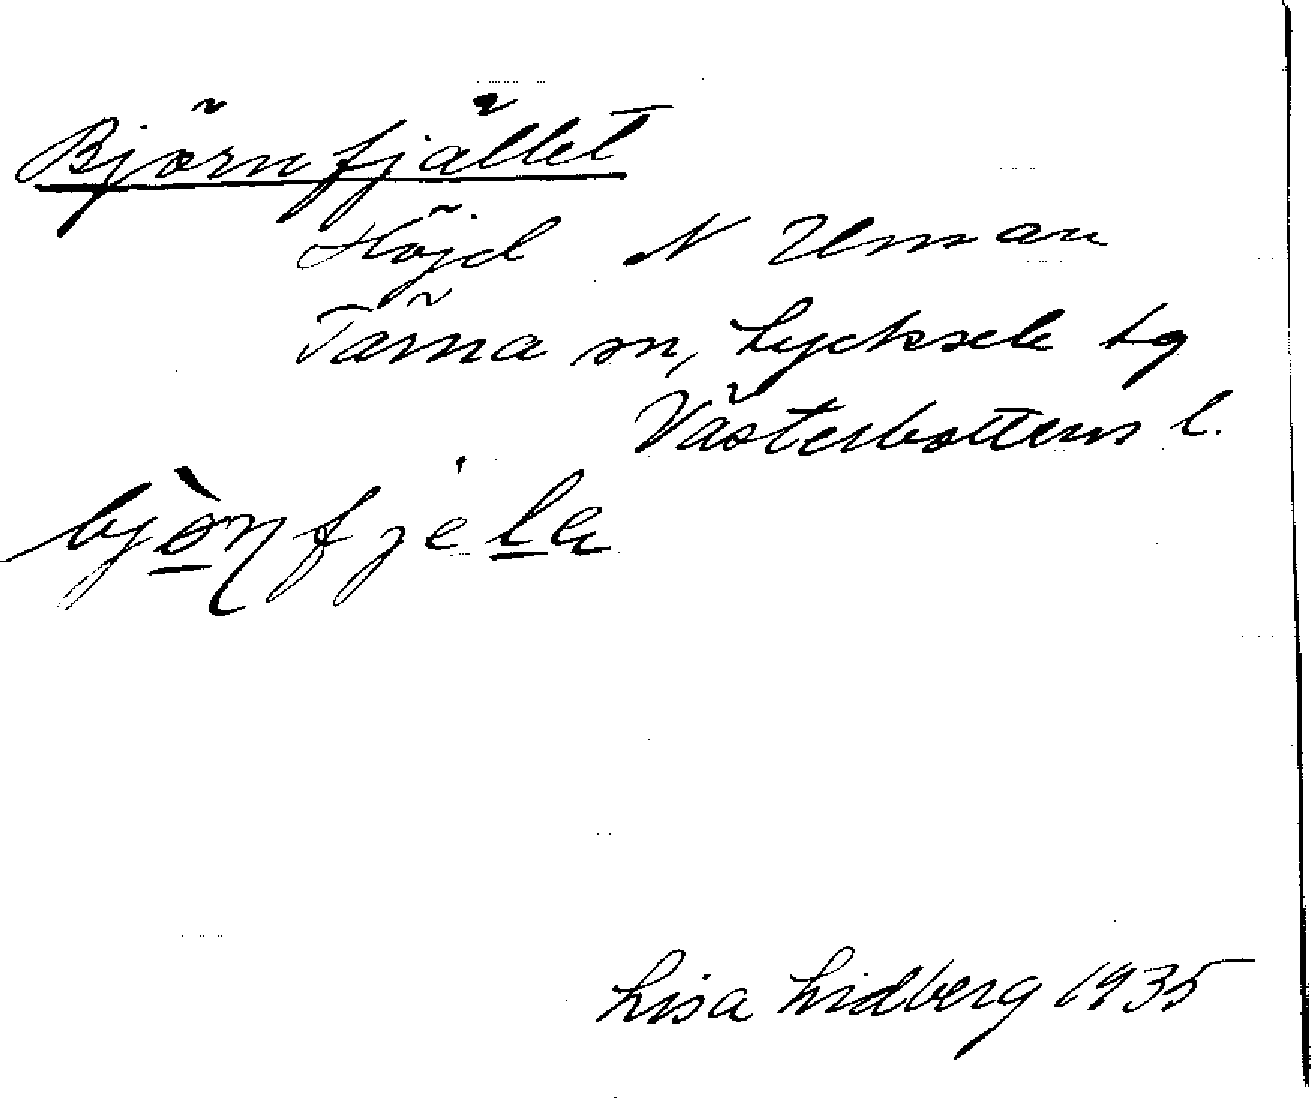 Björnfjället
Höjd N Uman
Tärna sn, Lycksele lg
Västerbottens l.
bjò̲ɳfjel̲a
Lisa Lidberg 1935